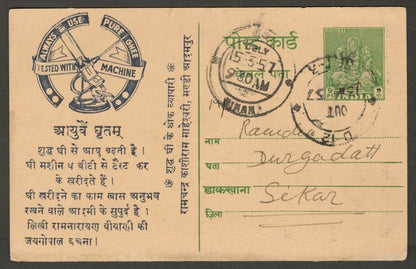 ALWAYS USE PURE GHEE
TESTED WITH MACHINE
आयुर्वै घृतम्
शुद्ध घी से आयु बढती है।
घी मशीन व बीटी से टैस्ट कर
के खरीदते हैं।
घी खरीदने का काम खास अनुभव
रखने वाले आदमी के सुपुर्द है।
लिखी रामनारायण बीयाणी की
जयगोपाल बचना।
शुद्ध घी के थोक व्यापारी
रामचन्द्र काशीराम माहेश्वरी, मण्डी आदमपुर
पोस्ट कार्ड
केवल पता
15-3-57
9-30AM
HISSAR
OUT
INDIA
Ramdeo
नाम
Durgadatt
पता
डाकखाना
Sikar
ज़िला